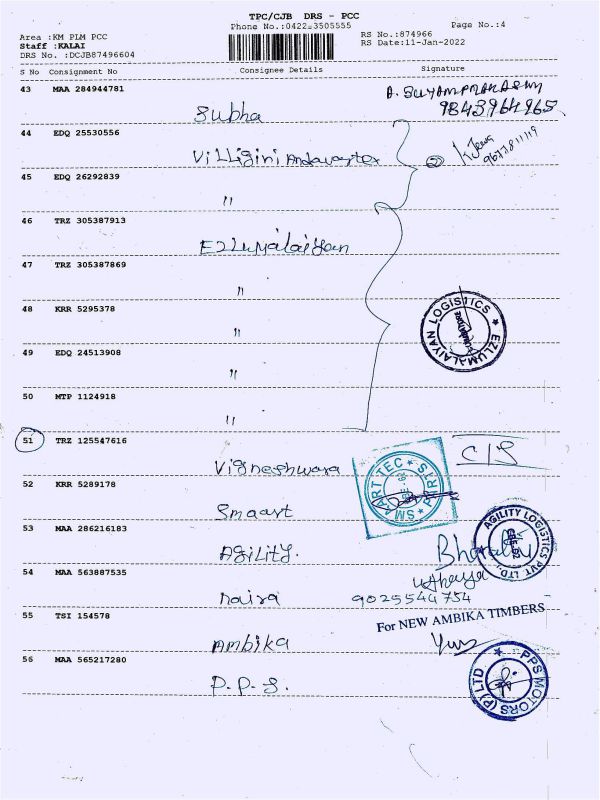 TPC/CJB DRS - PCC
Phone No.:0422-3505555
Page No.:4
Area :KM PLM PCC
Staff :KALAI
DRS No. :DCJB87496604
RS No.:874966
RS Date:11-Jan-2022
S No Consignment No Consignee Details Signature
43 MAA 284944781
Subha
9843964965
44 EDQ 25530556
Villigini
9677811119
45 EDQ 26292839
"
46 TRZ 305387913
Ezlumalaiyan
47 TRZ 305387869
"
48 KRR 5295378
"
EZLUMALAIYAN LOGISTICS
49 EDQ 24513908
"
50 MTP 1124918
"
51 TRZ 125547616
Vigneshwara
C/S
52 KRR 5289178
Smaart
SMAART TEC
53 MAA 286216183
Agility.
AGILITY LOGISTICS PVT LTD.,
54 MAA 563887535
Naira
9025544754
55 TSI 154578
Ambika
For NEW AMBIKA TIMBERS
56 MAA 565217280
P.P.S.
PPS MOTORS (P) LTD